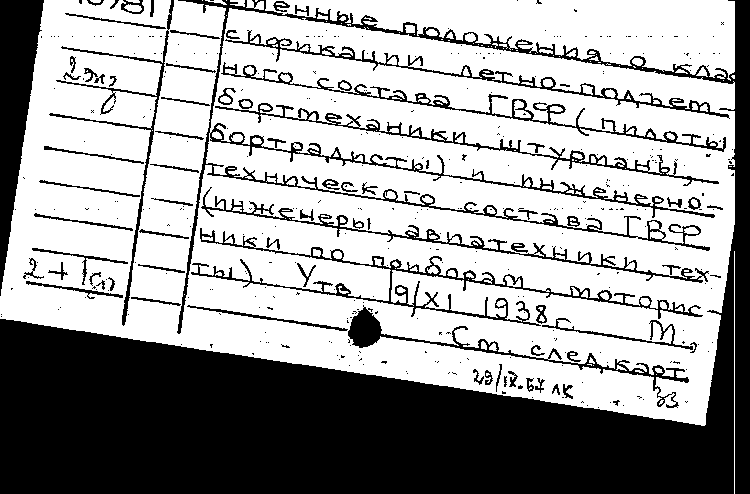 ственные положения о клас
сификации летно-подъем-
2 экз
0
ного состава ГВФ (пилоты,
бортмеханики, штурманы,
бортрадисты) и инженерно-
технического состава ГВФ
(инженеры, авиатехники, тех-
ники по приборам, моторис-
2 + 1
ты). Утв. 19/XI 1938г. М.,
См. след.карт